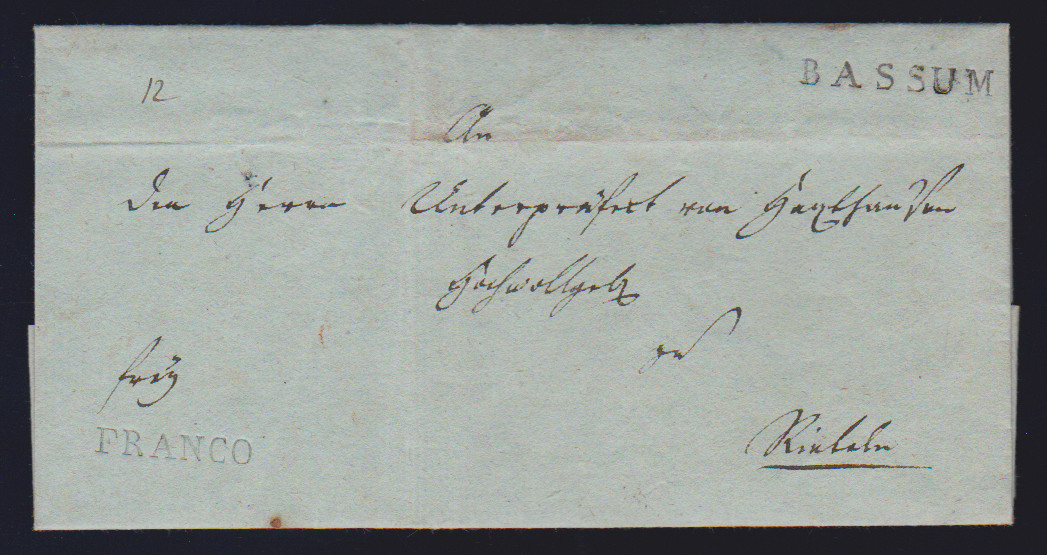 BASSUM
12
An
den Herrn Unterpräfect von Haxthausen
Hochwollgeb
zu
frey
FRANCO
Rinteln